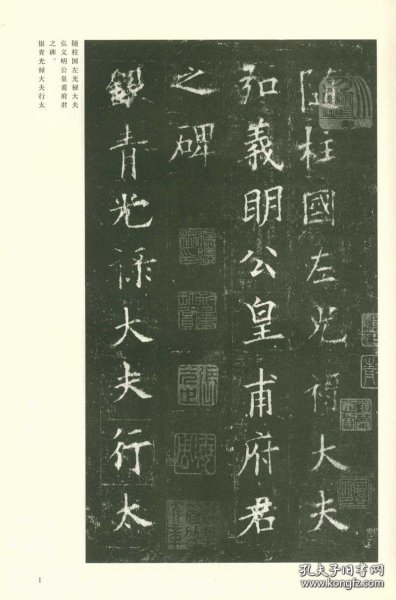 随柱国左光禄大夫
弘义明公皇甫府君
之碑。
银青光禄大夫行太
隨柱國左光祿大夫
弘義明公皇甫府君
之碑
銀青光祿大夫行太
1
孔夫子旧书网
www.kongfz.com